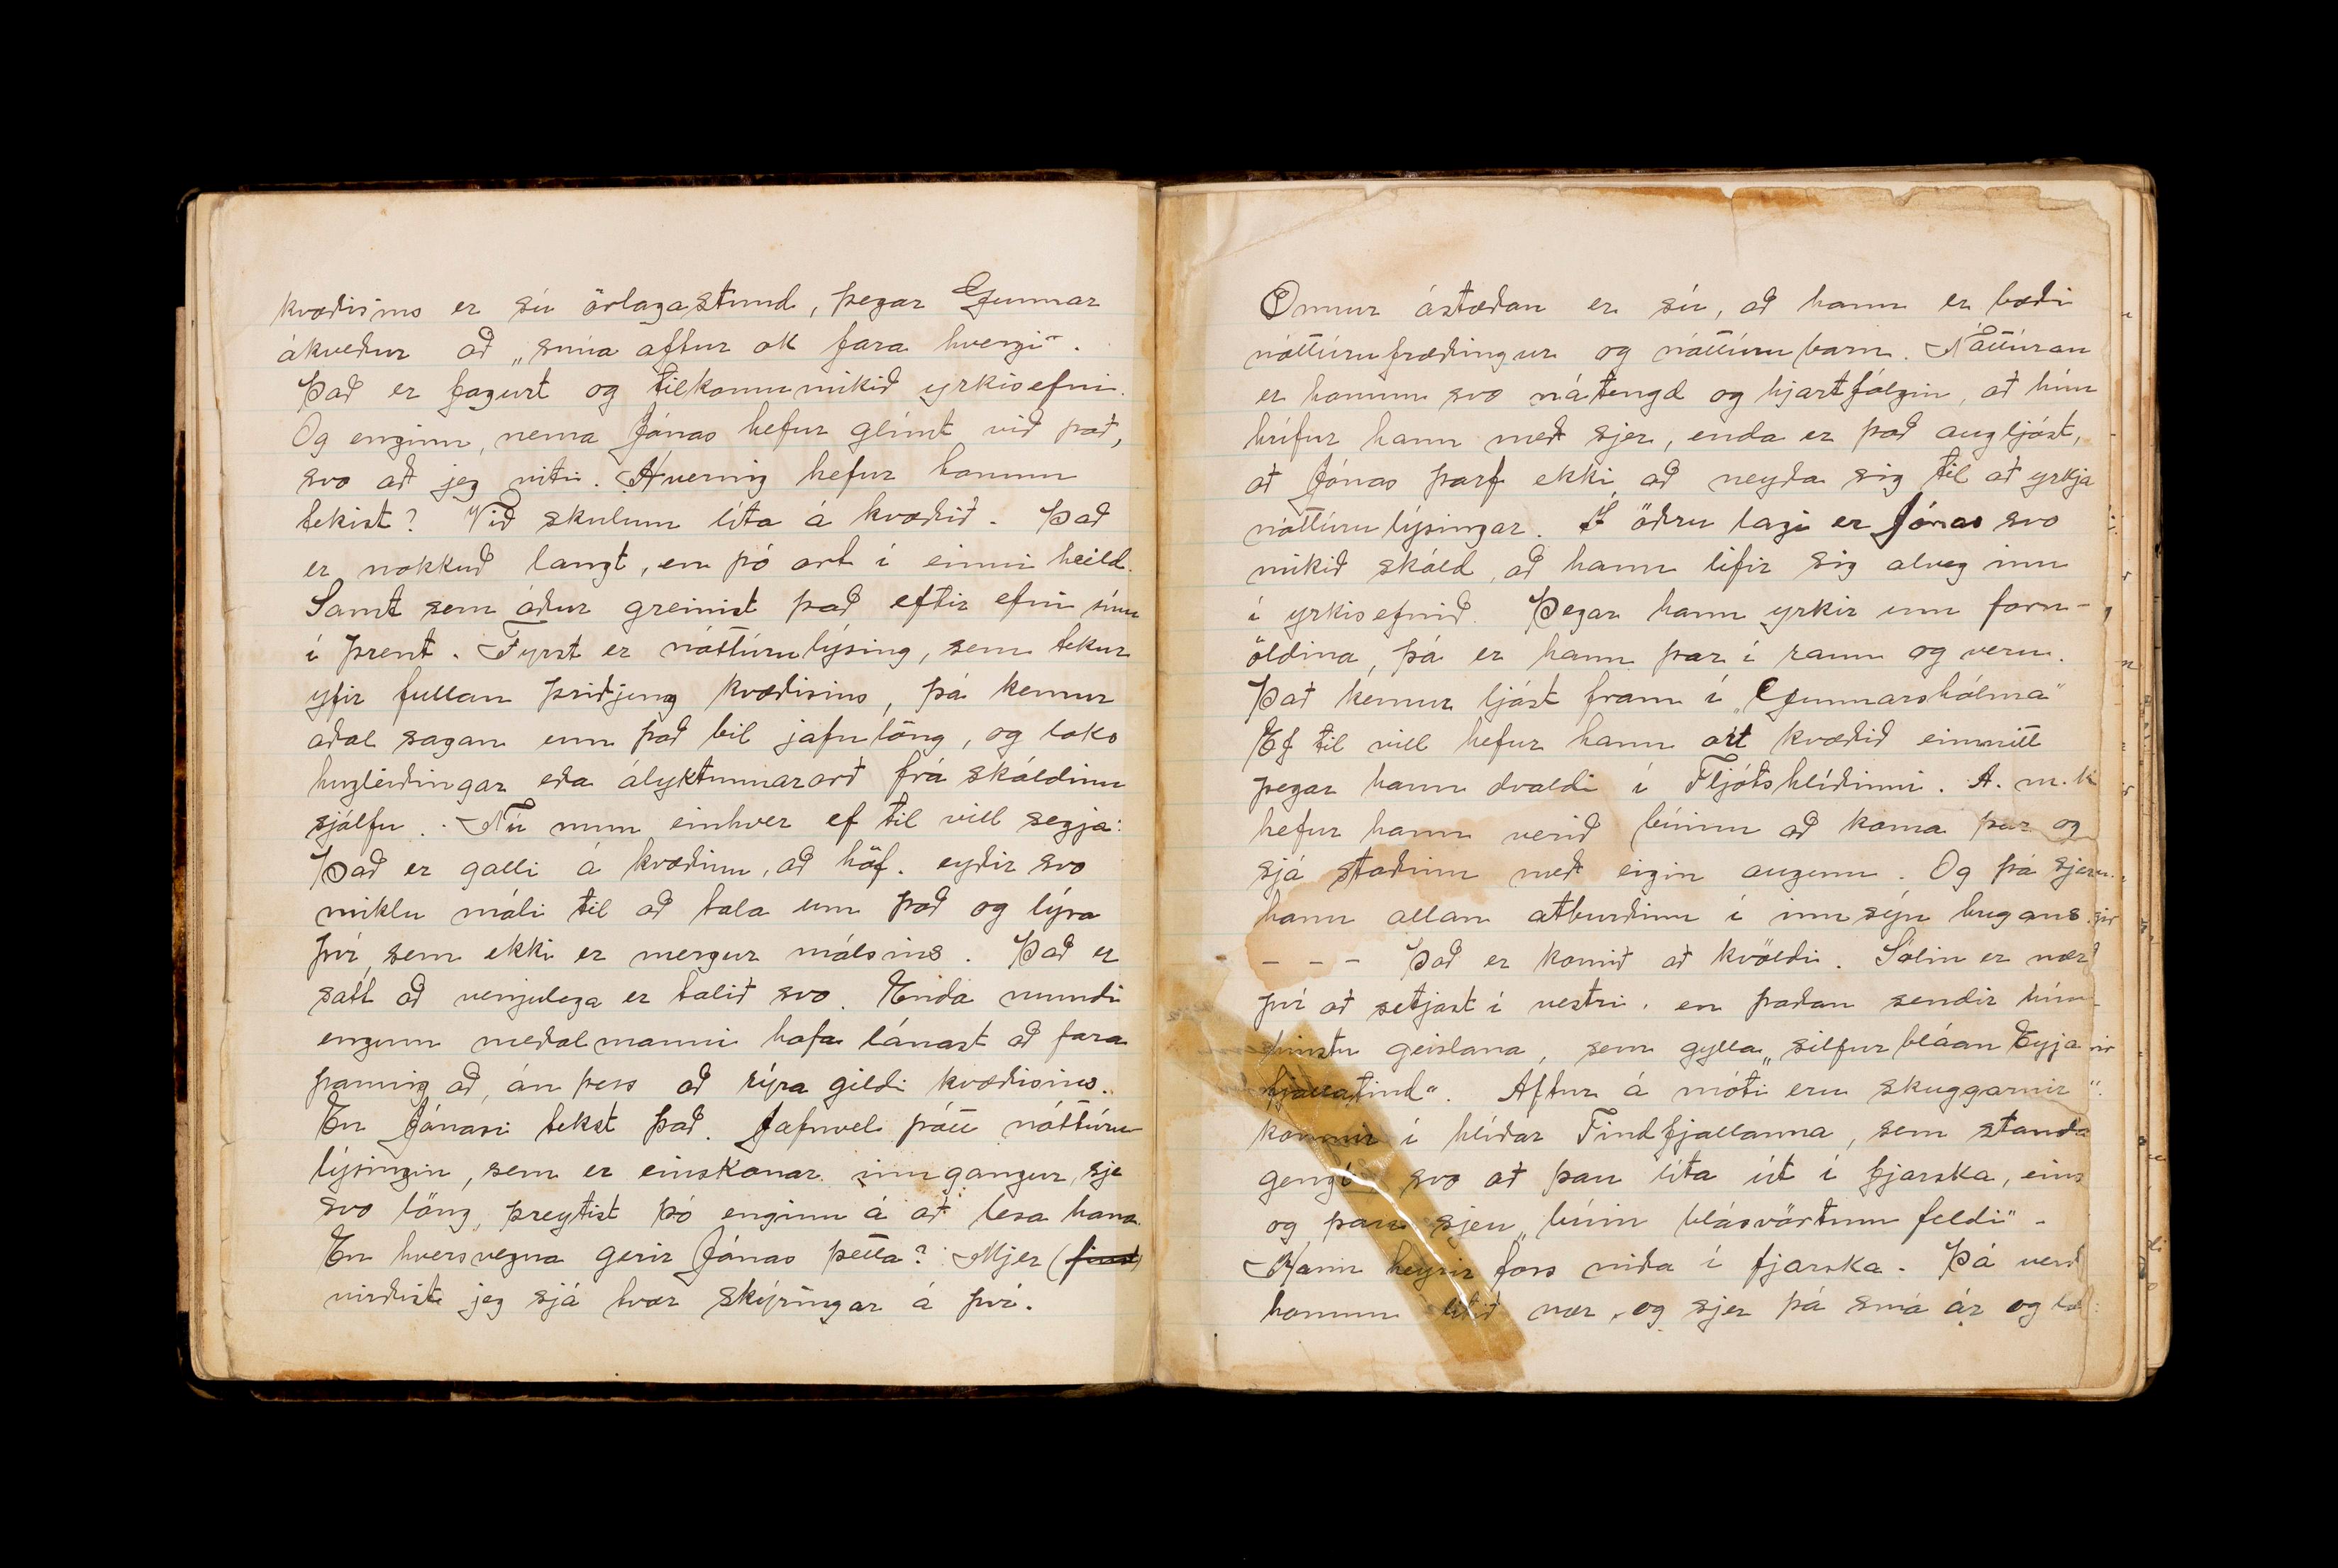 kvæðisins er sú örlagastund, þegar Gunnar
ákveður að „snúa aftur ok fara hvergi".
Það er fagurt og tilkomumikið yrkisefni.
Og enginn, nema Jónas hefur glímt við það,
svo að jeg viti. Hvernig hefur honum
tekist? Við skulum líta á kvæðið. Það
er nokkuð langt, en þó ort í einni heild.
Samt sem áður greinist það eftir efni sínu
í þrent. Fyrst er náttúrulýsing, sem tekur
yfir fullan þriðjung kvæðisins, þá kemur
aðal sagan um það bil jafnlöng, og loks
hugleiðingar eða ályktunnarorð frá skáldinu
sjálfu. Nú mun einhver ef til vill segja:
Það er galli á kvæðinu, að höf. eyðir svo
miklu máli til að tala um það og lýsa
því, sem ekki er mergur málsins. Það er
satt að venjulega er talið svo. Enda mundi
engum meðalmanni hafa lánast að fara
þannig að, án þess að rýra gildi kvæðisins.
En Jónasi tekst það. Jafnvel þótt náttúru-
lýsingin, sem er einskonar inngangur, sje
svo löng, þreytist þó enginn á að lesa hana.
En hversvegna gerir Jónas þetta? Mjer (finst)
virðist jeg sjá tvær skýringar á því.
Önnur ástæðan er sú, að hann er bæði
náttúrufræðingur og náttúrubarn. Náttúran
er honum svo nátengd og hjartfólgin, að hún
hrífur hann með sjer, enda er það augljóst,
að Jónas þarf ekki að neyða sig til að yrkja
náttúrulýsingar. Í öðru lagi er Jónas svo
mikið skáld, að hann lifir sig alveg inn
í yrkisefnið. Þegar hann yrkir um forn-
öldina, þá er hann þar í raun og veru.
Það kemur ljóst fram í „Gunnarshólma"
Ef til vill hefur hann ort kvæðið einmitt
þegar hann dvaldi í Fljótshlíðinni. A. m. k
hefur hann verið búinn að koma þar og
sjá staðinn með eigin augum. Og þá sjer
hann allan atburðinn í innsýn hugans.
- - - Það er komið að kvöldi. Sólin er nærð
því að setjast í vestri, en þaðan sendir hún
hinstu geislana, sem gylla „silfurbláan Eyja
fjallatind". Aftur á móti eru skuggarnir
komnir í hlíðar Tindfjallanna, sem standa
gengt svo að þau líta út í fjarska, eins
og þau sjeu „búin blásvörtum feldi" -
Hann heyrir foss niða í fjarska. Þá verð
honum litið nær, og sjer þá smá ár og læk